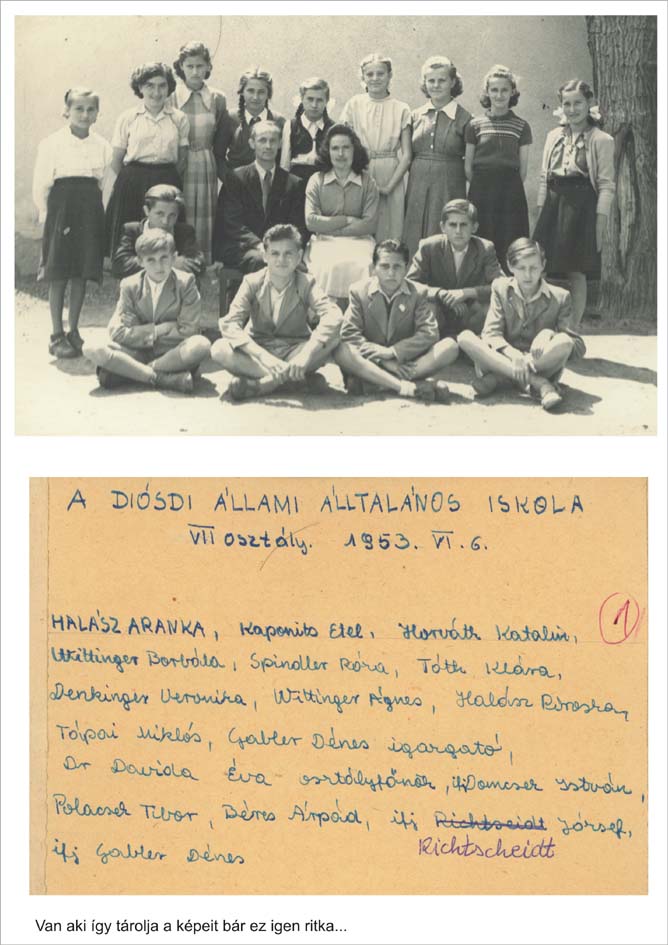 A DIÓSDI ÁLLAMI ÁLLTALÁNOS ISKOLA
VII osztály. 1953. VI. 6.
1
HALÁSZ ARANKA, Kaponits Etel, Horváth Katalin,
Wittinger Borbála, Spindler Róza, Tóth Klára,
Denkinger Veronika, Wittinger Ágnes, Halász Piroska,
Miklós, Gabler Dénes igazgató,
Dr Davida Éva osztályfőnök, ifj Domcsek István,
Polacsek Tibor, Béres Árpád, ifj Richtseidt József,
Richtscheidt
ifj Gabler Dénes
Van aki így tárolja a képeit bár ez igen ritka...